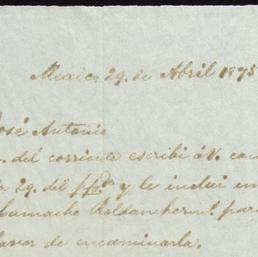 Mexico 29. de Abril 1875
José Antonio
. del corriente escribi á V. con
29. del ppdo. y le inclui un
Camacho Roldan herms. para
favor de encaminarla.